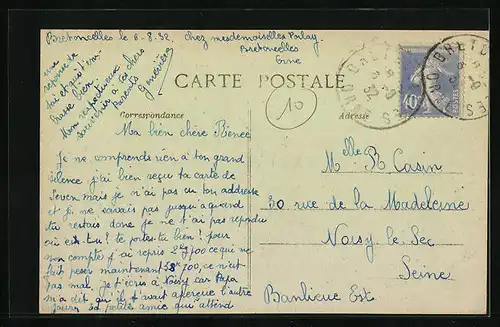 Bretoncelles le 6-8.32. chez mesdemoiselles
Bretoncelles
Orne
une
réponse de
toi et qui t'em-
brasse bien
Mon respectueux
souvenir à tes chers
Parents
Geneviève
CARTE POSTALE
10
Correspondance
Adresse
BRETONCELLES
40
POSTES
Ma bien chère Renée
Je ne comprends rien à ton grand
silence j'ai bien reçu ta carte de
mais je n'ai pas eu ton addresse
et je ne savais pas jusqu'à quand
tu restais donc je ne t'ai pas repondu
où est-tu? te portes tu bien? pour
mon compte j'ai repris 2kg700 ce qui me
fait peser maintenant 38k700, ce n'est
pas mal. Je t'écris à Noisy car Papa
m'a dit qu'il t'avait aperçue l'autre
jour, ta petite amie qui attend
Melle R Casin
20 rue de la Madeleine
Noisy le Sec
Seine
Banlieue Est